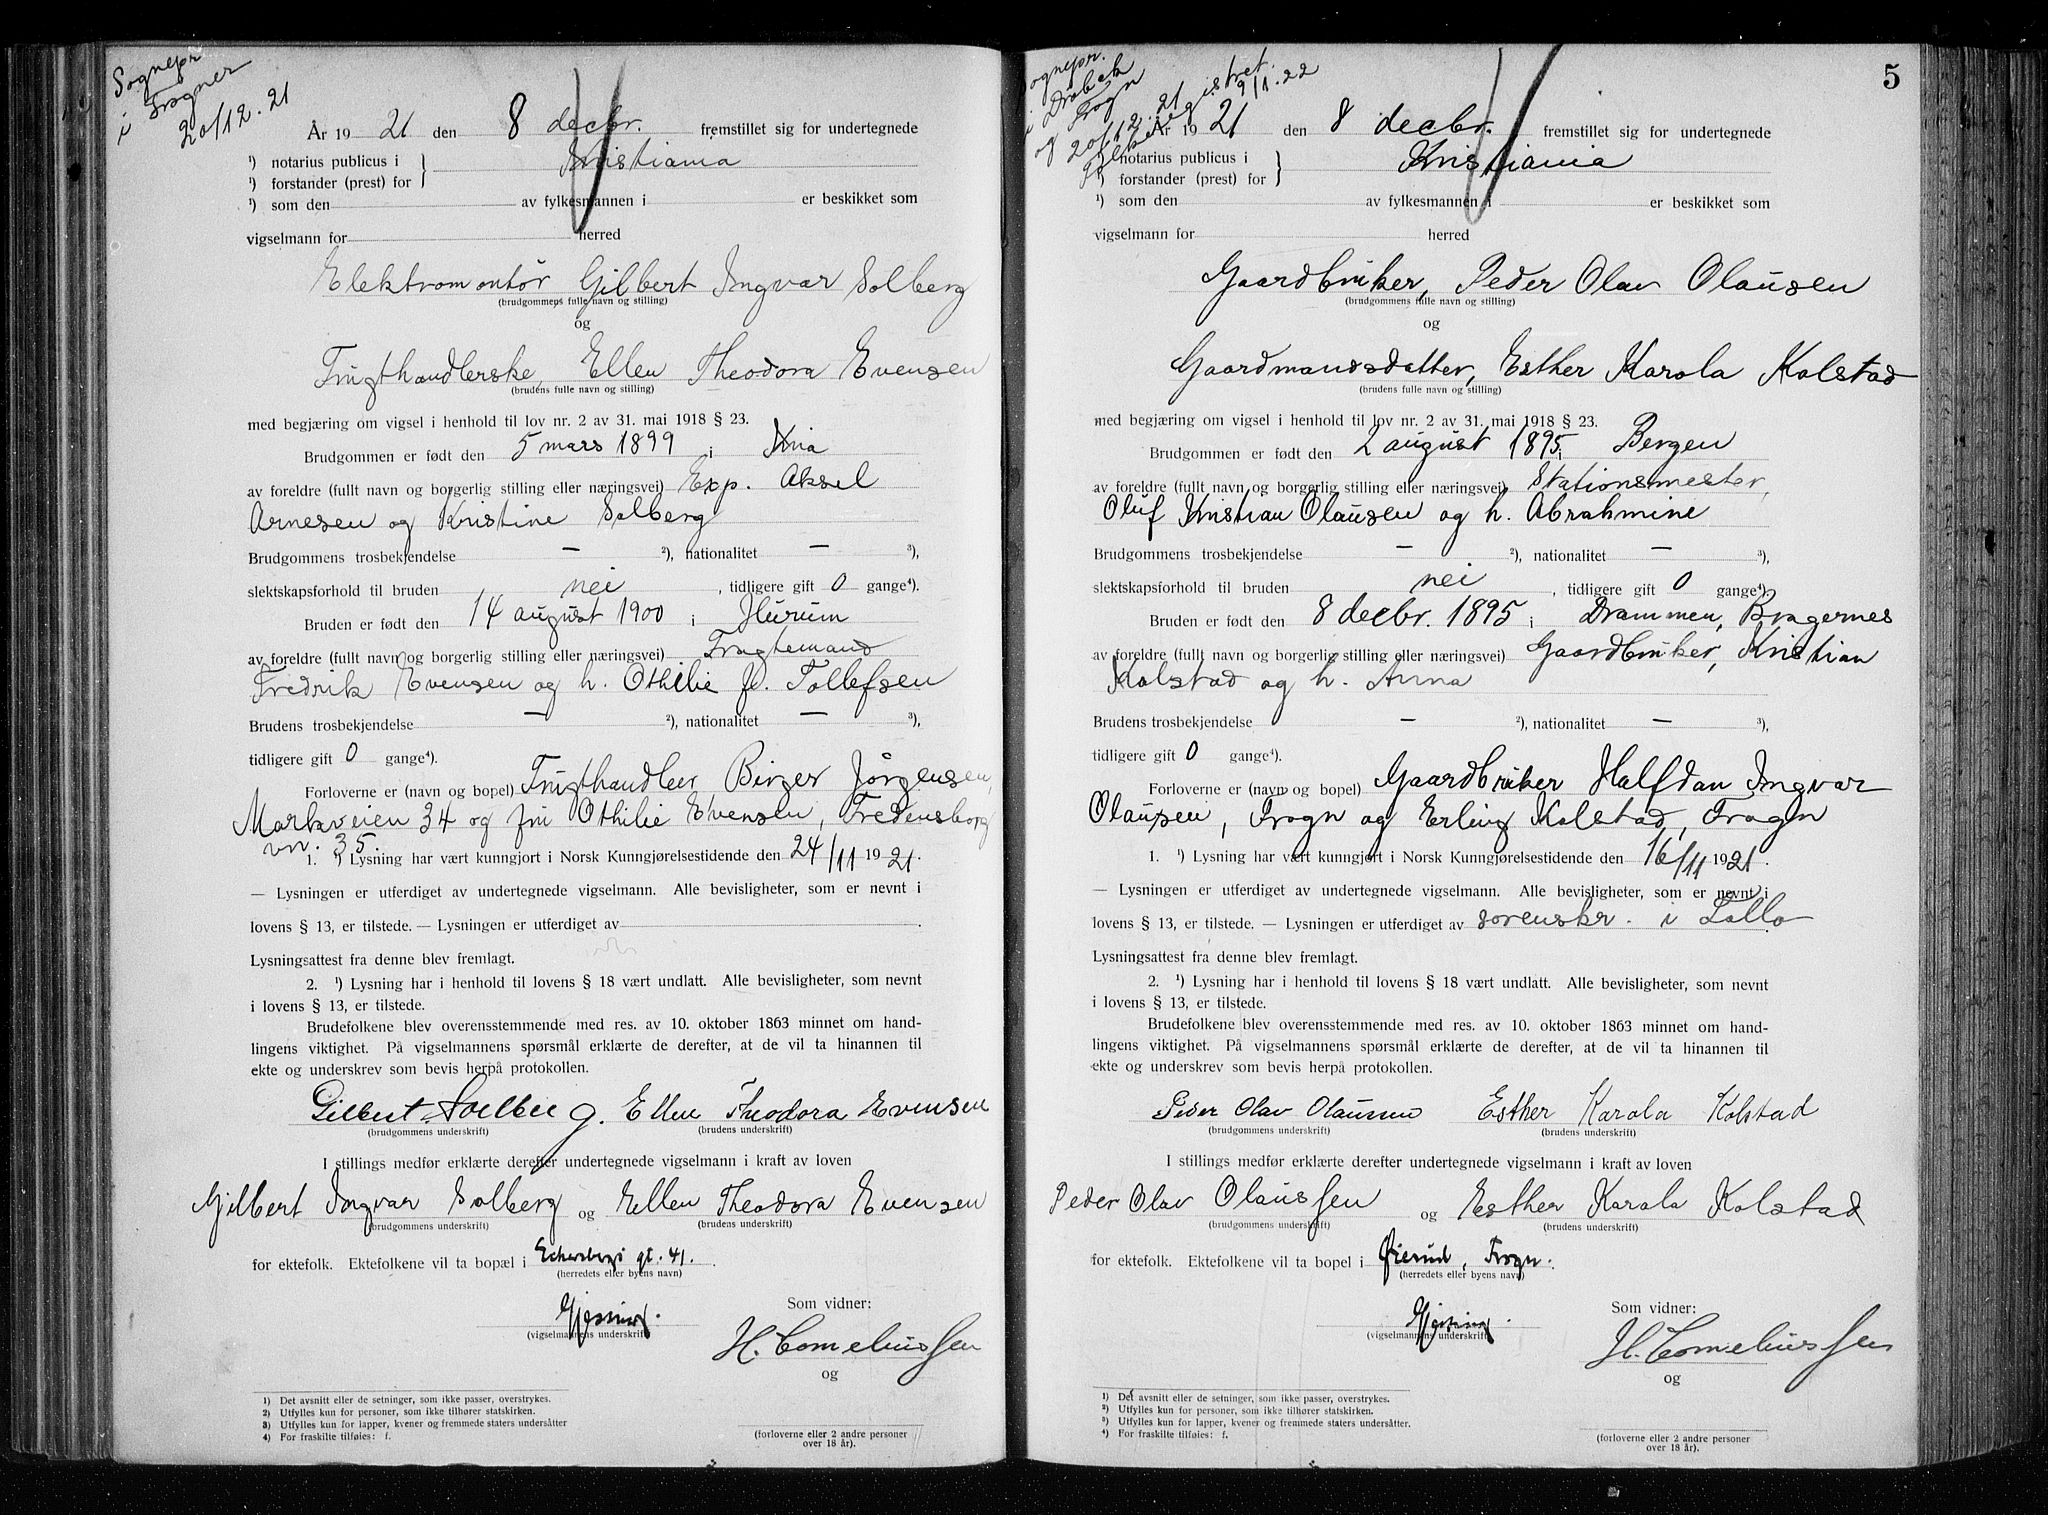 Sognepr
i Frogner
20/12.21
År 1921 den 8 decbr. fremstillet sig for undertegnede
¹) notarius publicus i } Kristiania
¹) forstander (prest) for
¹) som den av fylkesmannen i er beskikket som
vigselmann for herred
Elektromontör Gilbert Ingvar Solberg
(brudgommens fulle navn og stilling)
og
Frugthandlerske, Ellen Theodora Evensen
(brudens fulle navn og stilling)
med begjæring om vigsel i henhold til lov nr. 2 av 31. mai 1918 § 23.
Brudgommen er født den 5 mars 1899 i Kria
av foreldre (fullt navn og borgerlig stilling eller næringsvei) Exp. Aksel
Arnesen og Kristine Solberg
Brudgommens trosbekjendelse — ²), nationalitet — ³),
slektskapsforhold til bruden nei, tidligere gift 0 gange⁴).
Bruden er født den 14 august 1900 i Hurum
av foreldre (fullt navn og borgerlig stilling eller næringsvei) Fragtemand
Fredrik Evensen og h. Othilie f. Tollefsen
Brudens trosbekjendelse — ²), nationalitet — ³),
tidligere gift 0 gange⁴).
Forloverne er (navn og bopel) Frugthandler Birger Jörgensen,
Markveien 34 og fru Othilie Evensen, Fredensborg
vn. 35.
1. ¹) Lysning har vært kunngjort i Norsk Kunngjørelsestidende den 24/11 1921.
— Lysningen er utferdiget av undertegnede vigselmann. Alle bevisligheter, som er nevnt i
lovens § 13, er tilstede. — Lysningen er utferdiget av
Lysningsattest fra denne blev fremlagt.
2. ¹) Lysning har i henhold til lovens § 18 vært undlatt. Alle bevisligheter, som nevnt
i lovens § 13, er tilstede.
Brudefolkene blev overensstemmende med res. av 10. oktober 1863 minnet om hand-
lingens viktighet. På vigselmannens spørsmål erklærte de derefter, at de vil ta hinannen til
ekte og underskrev som bevis herpå protokollen.
Gilbert Solberg. Ellen Theodora Evensen
(brudgommens underskrift) (brudens underskrift)
I stillings medfør erklærte derefter undertegnede vigselmann i kraft av loven
Gilbert Ingvar Solberg og Ellen Theodora Evensen
(brudgommens underskrift) (brudens underskrift)
for ektefolk. Ektefolkene vil ta bopæl i Eckersbergs gt. 41.
(herredets eller byens navn)
Som vidner:
(vigselmannens underskrift)
H. Corneliussen
og
1) Det avsnitt eller de setninger, som ikke passer, overstrykes.
2) Utfylles kun for personer, som ikke tilhører statskirken.
3) Utfylles kun for lapper, kvener og fremmede staters undersåtter
4) For fraskilte tilføies: f.
(forloverne eller 2 andre personer
over 18 år).
5
Sognepr.
i Dröbak
og Frogn
20/12.21
9/1.22
År 1921 den 8 decbr. fremstillet sig for undertegnede
¹) notarius publicus i } Kristiania
¹) forstander (prest) for
¹) som den av fylkesmannen i er beskikket som
vigselmann for herred
Gaardbruker, Peder Olav Olausen
(brudgommens fulle navn og stilling)
og
Gaardmandsdatter, Esther Karola Kolstad
(brudens fulle navn og stilling)
med begjæring om vigsel i henhold til lov nr. 2 av 31. mai 1918 § 23.
Brudgommen er født den 2 august 1895 i Bergen
av foreldre (fullt navn og borgerlig stilling eller næringsvei) Stationsmester,
Oluf Kristian Olausen og h. Abrahmine
Brudgommens trosbekjendelse — ²), nationalitet — ³),
slektskapsforhold til bruden nei, tidligere gift 0 gange⁴).
Bruden er født den 8 decbr. 1895 i Drammen, Bragernes
av foreldre (fullt navn og borgerlig stilling eller næringsvei) Gaardbruker, Kristian
Kolstad og h. Anna
Brudens trosbekjendelse — ²), nationalitet — ³),
tidligere gift 0 gange⁴).
Forloverne er (navn og bopel) Gaardbruker Halfdan Ingvar
Olausen, Frogn og Erling Kolstad, Frogn
1. ¹) Lysning har vært kunngjort i Norsk Kunngjørelsestidende den 16/11 1921.
— Lysningen er utferdiget av undertegnede vigselmann. Alle bevisligheter, som er nevnt i
lovens § 13, er tilstede. — Lysningen er utferdiget av sorenskr. i Follo
Lysningsattest fra denne blev fremlagt.
2. ¹) Lysning har i henhold til lovens § 18 vært undlatt. Alle bevisligheter, som nevnt
i lovens § 13, er tilstede.
Brudefolkene blev overensstemmende med res. av 10. oktober 1863 minnet om hand-
lingens viktighet. På vigselmannens spørsmål erklærte de derefter, at de vil ta hinannen til
ekte og underskrev som bevis herpå protokollen.
Peder Olav Olaussen Esther Karola Kolstad
(brudgommens underskrift) (brudens underskrift)
I stillings medfør erklærte derefter undertegnede vigselmann i kraft av loven
Peder Olav Olaussen og Esther Karola Kolstad
(brudgommens underskrift) (brudens underskrift)
for ektefolk. Ektefolkene vil ta bopel i Øierud, Frogn.
(herredets eller byens navn)
Som vidner:
(vigselmannens underskrift)
H. Corneliussen
og
1) Det avsnitt eller de setninger, som ikke passer, overstrykes.
2) Utfylles kun for personer, som ikke tilhører statskirken.
3) Utfylles kun for lapper, kvener og fremmede staters undersåtter.
4) For fraskilte tilføies: f.
(forloverne eller 2 andre personer
over 18 år).